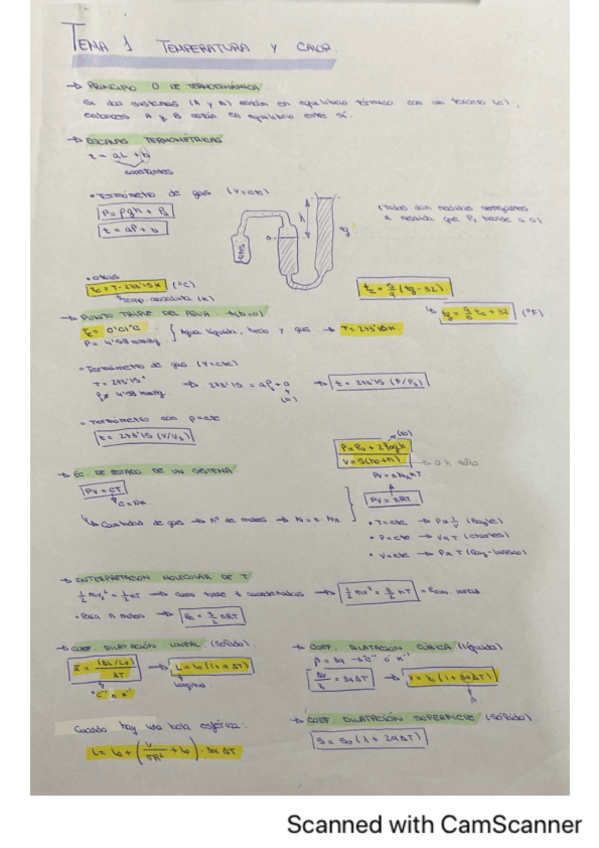 TEMA 1. TEMPERATURA Y CALOR.
→ PRINCIPIO 0 DE TERMODINÁMICA
Si dos sistemas (A y B) están en equilibrio térmico con un tercero (C),
entonces A y B están en equilibrio entre sí.
→ ESCALAS TERMOMÉTRICAS
t = aL + b
constantes
• Termómetro de gas (V=cte)
P = ρgh + P₀
t = aP + b
h
gas
(Todos dan medidas
a medida que P₃ tiende a 0)
• Otras
tc = T - 273'15K (°C)
Temp. absoluta (K)
tc = 5/9 (tf - 32)
tf = 9/5 tc + 32 (°F)
→ PUNTO TRIPLE DEL AGUA → (b=0)
Tc = 0'01°C
P = 4'58 mmHg
} Agua líquida, hielo y gas → T = 273'16K
• Termómetro de gas (V=cte)
T = 273'15°
4'58 mmHg
→ 273'15 = aP₃ + 0 → t = 273'15 (P/P₃)
(b)
• Termómetro con P=cte
t = 273'15 (V/V₃)
→ EC. DE ESTADO DE UN SISTEMA
PV = CT
C = NK
↳ Cantidad de gas → nº de moles → N = n · NA
V = S(h₀+h)
PV = nNAKT
PV = nRT
• T=cte → P∝1/V (Boyle)
• P=cte → V∝T (Charles)
• V=cte → P∝T (Gay-Lussac)
→ INTERPRETACIÓN MOLECULAR DE T
→ Como tiene 3 coordenadas → ½mv² = 3/2 KT
• Para n moles → Ec = 3/2 nRT
→ COEF. DILATACIÓN LINEAL (Sólido)
α = (ΔL/L₀)/ΔT → L = L₀(1 + αΔT)
°C⁻¹ o K⁻¹
Longitud
→ COEF. DILATACIÓN CÚBICA (Líquido)
β = 3α → °C⁻¹ o K⁻¹
ΔV/V₀ = 3αΔT → V = V₀(1 + 3αΔT)
β
Cuando hay una bola esférica:
L = L₀ + (V/πR² + L₀) · 3αΔT
→ COEF. DILATACIÓN SUPERFICIE (Sólido)
S = S₀ (1 + 2αΔT)
Scanned with CamScanner